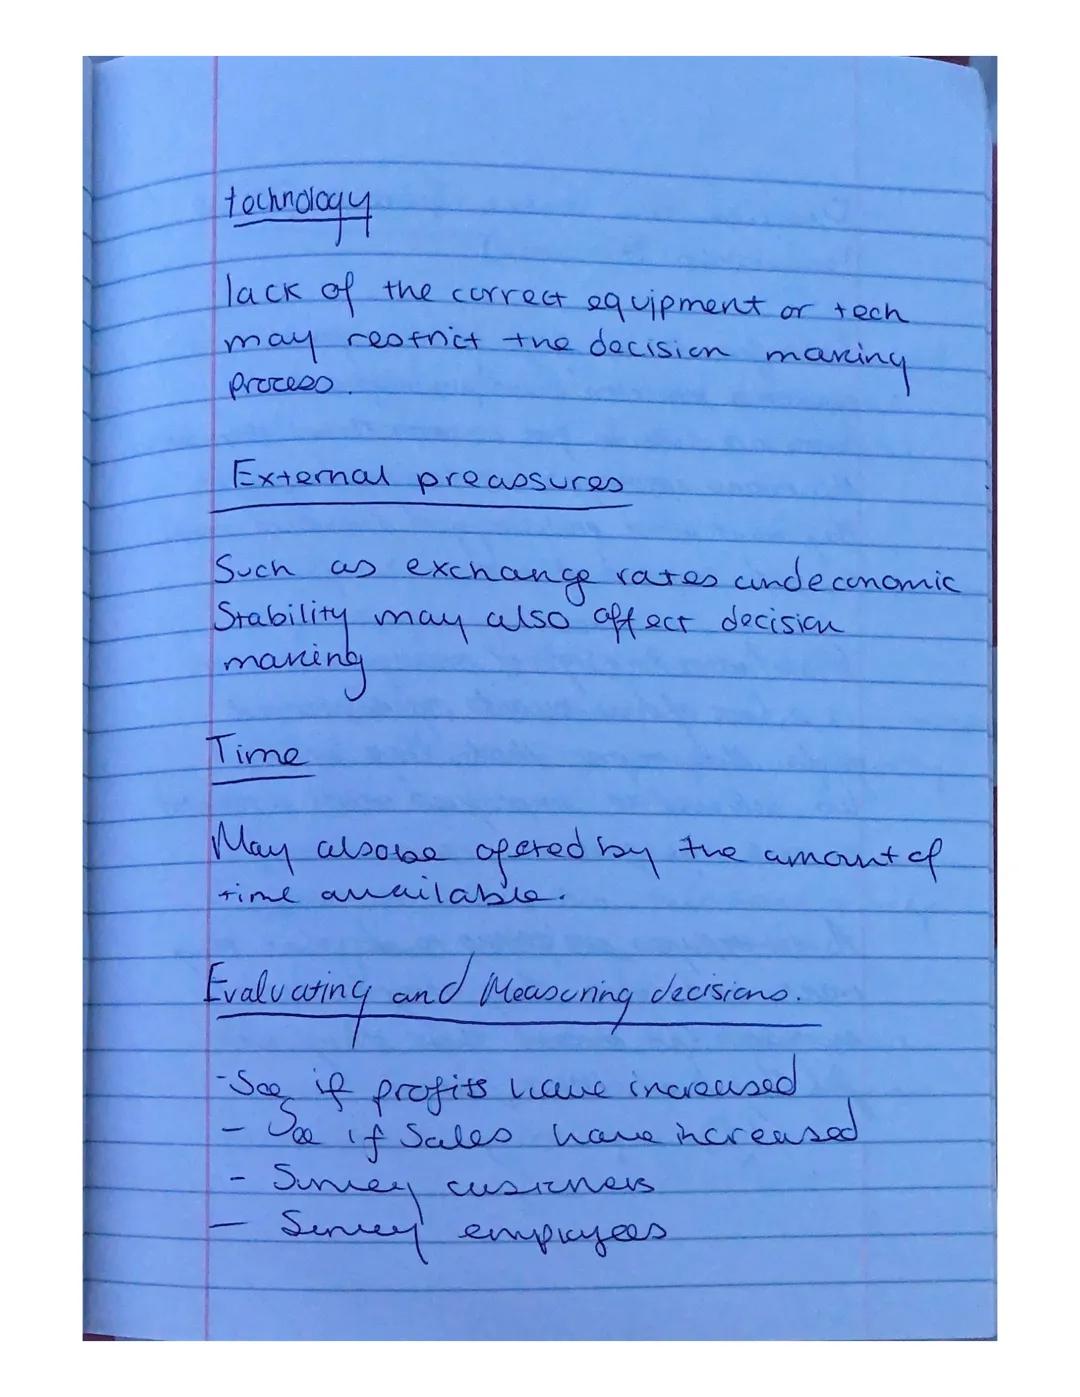 technology
lack of the correct equipment or tech
may restrict the decision making
process.
External preassures
Such as exchange rates and economic
Stability may also affect decision
making
Time
May also be afected by the amount of
time available.
Evaluating and Measuring decisions.
- See if profits have increased
- See if Sales have increased
- Survey customers
- Survey employees